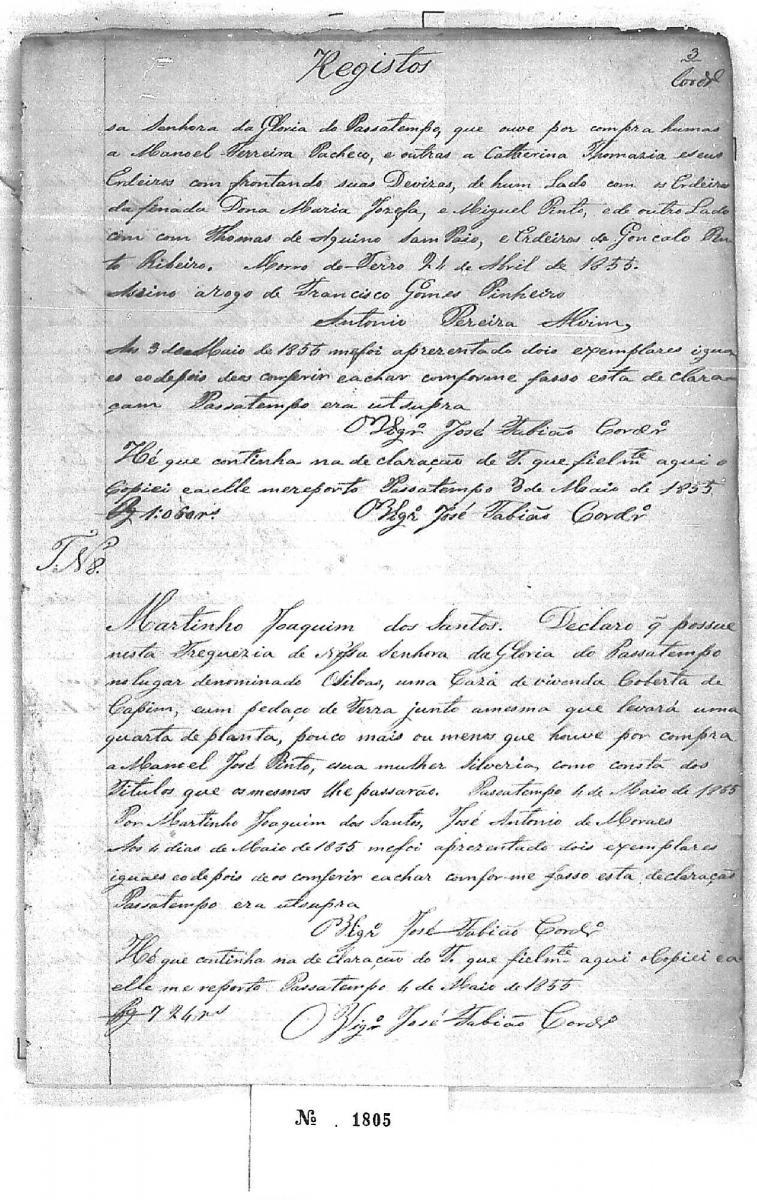 Registos
3
Cordr.
sa Senhora da Gloria do Passatempo, que ouve por compra humas
a Manoel Ferreira Pacheco, e outras a Catherina Thomazia e seus
Erdeiros com frontando suas Devizas, de hum Lado com os Erdeiros
da fenada Dona Maria Jozefa, e Miguel Pinto, e de outro Lado
com com Thomas de Aquino Sam Paio, e Erdeiros de Goncalo Pin
to Ribeiro. Morro do Ferro 24 de Abril de 1855.
Assino arogo de Francisco Gomes Pinheiro
Antonio Pereira Alvim,
Aos 3 de Maio de 1855 mefoi aprezentado dois exemplares igua
es eodepois deos comferir eachar comforme fasso esta de clara
çam Passatempo era utsupra
O Vigr.o José Fabião Cordr.o
Hé que continha na de claração de T. que fielm.te aqui o
Copiei eaelle mereporto Passatempo 3 de Maio de 1855
Pg 1:060 rs. O Vigr.o José Fabião Cordr.o
T. N.o 8.
Martinho Joaquim dos Santos. Declaro q̃ possue
nesta Freguezia de Nossa Senhora da Gloria do Passatempo
no lugar denominado OSilvas, uma Caza de vivenda Coberta de
Capim, eum pedaço de Terra junto amesma que levará uma
quarta de planta, pouco mais ou menos que houve por compra
a Manoel José Pinto, esua mulher Silveria, como consta dos
Titulos que osmesmos lhe passarão. Passatempo 4 de Maio de 1855
Por Martinho Joaquim dos Santos, José Antonio de Moraes
Aos 4 dias de Maio de 1855 mefoi aprezentado dois exemplares
iguaes eodepois deos comferir eachar comfor-me fasso esta declaração
Passatempo era utsupra
O Vigr.o José Fabião Cordr.o
Hé que continha na de claração do T. que fielm.te aqui oCopiei e a
elle me reporto Passatempo 4 de Maio de 1855
Pg 724 rs O Vigr.o José Fabião Cordr.o
No. 1805